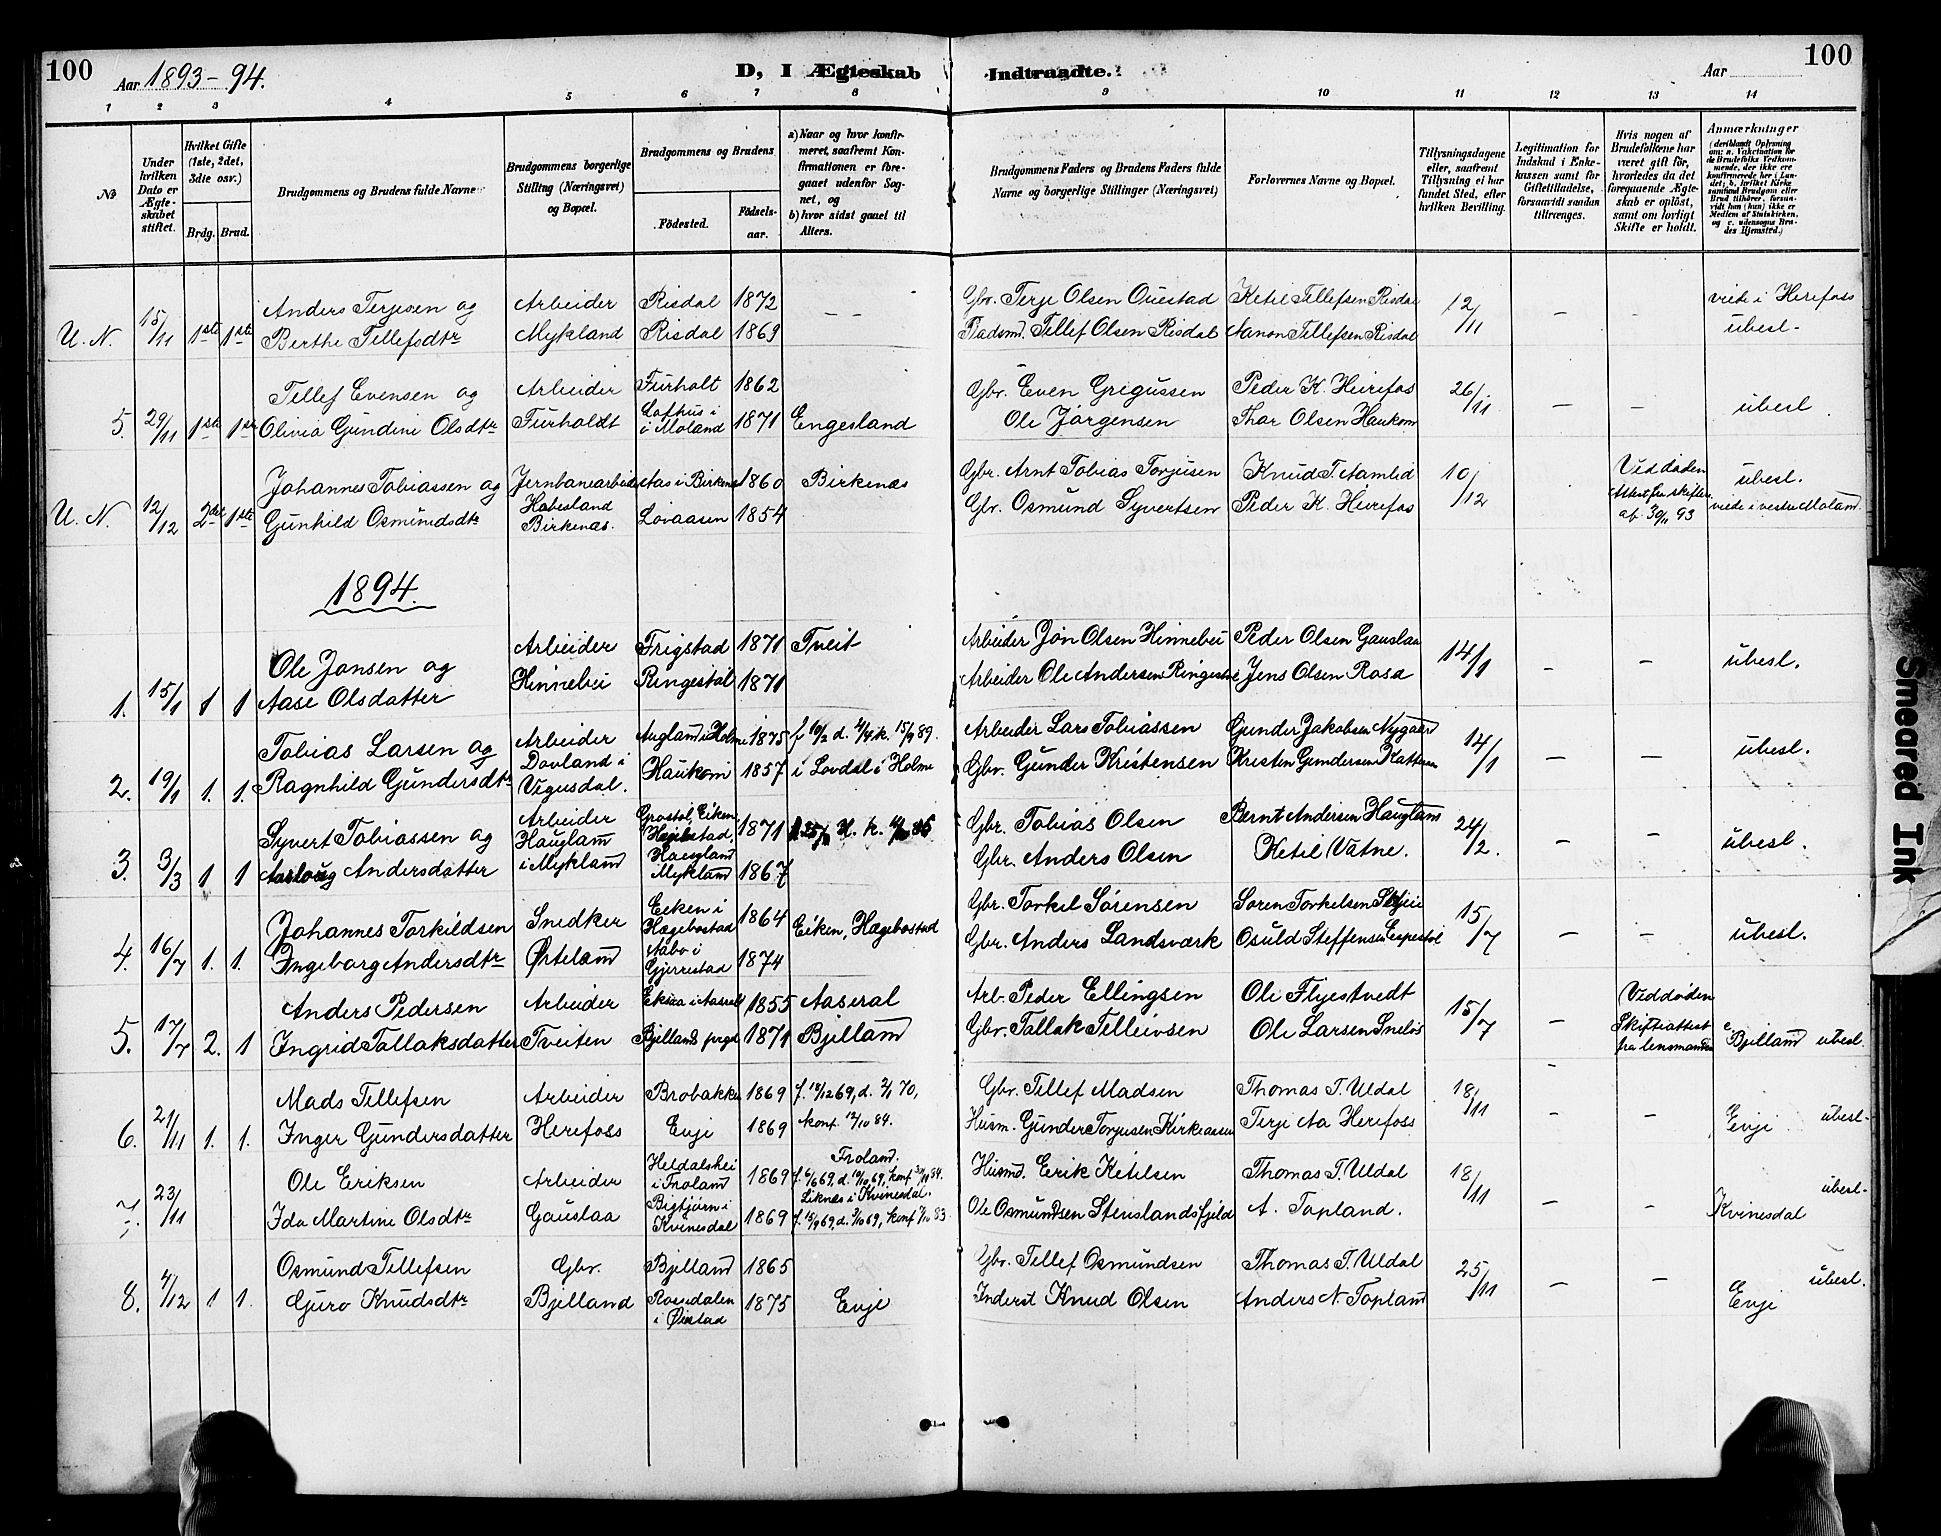 100
Aar 1893-94.
D, I Ægteskab Indtraadte.
Aar
100
1 2 3 4 5 6 7 8 9 10 11 12 13 14
No
Under hvilken Dato er Ægteskabet stiftet.
Hvilket Gifte (1ste, 2det, 3die osv.)
Brdg. Brud.
Brudgommens og Brudens fulde Navne
Brudgommens borgerlige Stilling (Næringsvei) og Bopæl.
Brudgommens og Brudens
Födested.
Födselsaar.
a) Naar og hvor konfirmeret, saafremt Konfirmationen er foregaaet udenfor Sognet, og
b) hvor sidst gaaet til Alters.
Brudgommens Faders og Brudens Faders fulde Navne og borgerlige Stillinger (Næringsvei)
Forlovernes Navne og Bopæl.
Tillysningsdagene eller, saafremt Tillysning ei har fundet Sted, efter hvilken Bevilling.
Legitimation for Indskud i Enkekassen samt for Giftetilladelse, forsaavidt saadan tiltrænges.
Hvis nogen af Brudefolkene har været gift för, hvorledes da det foregaaende Ægteskab er oplöst, samt om lovligt Skifte er holdt.
Anmærkninger (deriblandt Oplysning om: a. Vakcination for de Brudefolks Vedkommende, der ikke ere konfirmerede her i Landet; b. hvilket Kirkesamfund Brudgom eller Brud tilhörer, forsaavidt han (hun) ikke er Medlem af Statskirken, og c. udensogns Brudes Hjemsted.)
U. N. 15/11 1ste 1ste Anders Terjesen og Arbeider Risdal 1872 - - Gbr. Terje Olsen Ouestad Ketil Tellefsen Risdal 12/11 - - viede i Herefoss
Berthe Tellefsdtr Mykland Risdal 1869 Pladsmd. Tellef Olsen Risdal Aanon Tellefsen Risdal ubesl.
5. 29/11 1ste 1ste Tellef Evensen og Arbeider Furholt 1862 Gbr. Even Gregussen Peder K. Heirefos 26/11 - - ubesl
Olivia Gundine Olsdtr Furholdt Lofthus i i Moland 1871 Engesland Ole Jörgensen Thor Olsen Haukom
U. N. 12/12 2de 1ste Johannes Tobiassen og Jernbanearbeider Aas i Birkenæs 1860 Birkenæs Gbr. Arnt Tobias Torjusen Knud T. Aamlid 10/12 Ved döden ubesl.
Gunhild Osmundsdtr Habesland Birkenæs. Lovaasen 1854 Gbr. Osmund Syvertsen Peder K. Heirefos Attest fra skifter. af 30/11 93 viede i vestre Moland
1894.
1. 15/1 1 1 Ole Jonsen og Arbeider Frigstad 1871 Tveit Arbeider Jon Olsen Hinnebei Peder Olsen Gauslaa 14/1 - - ubesl.
Aase Olsdatter Hinnebei Ringestöl 1871 Arbeider Ole Andersen Ringestöl Jens Olsen Rosa
2. 19/1 1. 1. Tobias Larsen og Arbeider Augland i Holme 1875 f 10/2 d. 4/4 k. 15/9 89. Arbeider Lars Tobiassen Gunder Jakobsen Nygaard 14/1 ubesl.
Ragnhild Gundersdtr Dovland i Vegusdal. Haukom 1857 i Lovdal i Holme Gbr. Gunder Kristensen Kristen Gundersen
3. 3/3 1. 1 Syvert Tobiassen og Arbeider Eiken Hægebostad, 1871 Gbr. Tobias Olsen Bernt Andersen Haugland 24/2. - - ubesl.
Aaslaug Andersdatter Haugland i Mykland Haugland Mykland 1867 Gbr. Anders Olsen Ketil Vatne.
4. 16/7 1. 1. Johannes Torkildsen Snedker Eiken i Hægebostad 1864 Eiken, Hægebostad Gbr. Torkel Sörensen Sören Torkelsen Skjeie 15/7 - - ubesl.
Ingeborg Andersdtr Örteland Aabo i Gjerrestad 1874 Gbr. Anders Landsværk Osuld Steffensen Espestöl
5. 17/7 2. 1 Anders Pedersen Arbeider i Aaseral 1855 Aaseral Arb. Peder Ellingsen Ole Flyestvedt 15/7 - Ved döden
Ingrid Tallaksdatter Tveiten Bjelland prgd 1871 Bjelland Gbr. Tallak Telleivsen Ole Larsen Sneløs Skifteattest fra lensmanden c Bjelland ubesl.
6. 21/11 1. 1. Mads Tellefsen Arbeider Brobakke 1869 f. 18/12 69, d. 2/1 70, Gbr. Tellef Madsen Thomas T. Uldal 18/11 - -
Inger Gundersdatter Herefoss Evje 1869 konf. 12/10 84. Husm. Gunder Torjusen Kirkeaasen Terje Aa Herefoss Evje ubesl.
7. 23/11 Ole Eriksen Arbeider Heldalshei i Froland 1869 Froland. f. 6/6 69, d. 10/10 69, konf 84. Husmd. Eerik Ketilsen Thomas T. Uldal 18/11 ubesl.
Ida Martine Olsdtr Gauslaa Bigtjörn i Kvinesdal 1869 Liknes i Kvinesdal. f. 15/9 69, d. 3/10 69, konf 7/10 83. Ole Osmundsen Stenslandsfjeld A. Topland. - - Kvinesdal
8. 4/12 1 1. Osmund Tellefsen Gbr. Bjelland 1865 Gbr. Tellef Osmundsen Thomas T. Uldal 25/11 - - ubesl.
Guro Knudsdtr Bjelland Rosedalen i Øiestad 1875 Evje Inderst Knud Olsen Anders N. Topland Evje
Smeared Ink